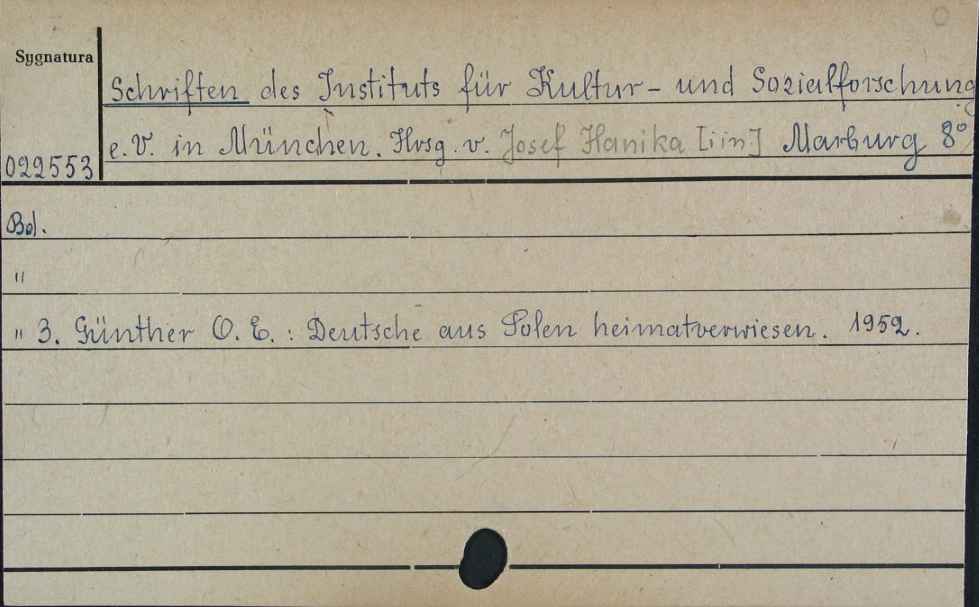 Sygnatura
Schriften des Instituts für Kultur- und Sozialforschung
e.V. in München. Hrsg. v. Josef Hanika [i in] Marburg 8°
022553
Bd.
"
" 3. Günther O. E. : Deutsche aus Polen heimatverwiesen. 1952.